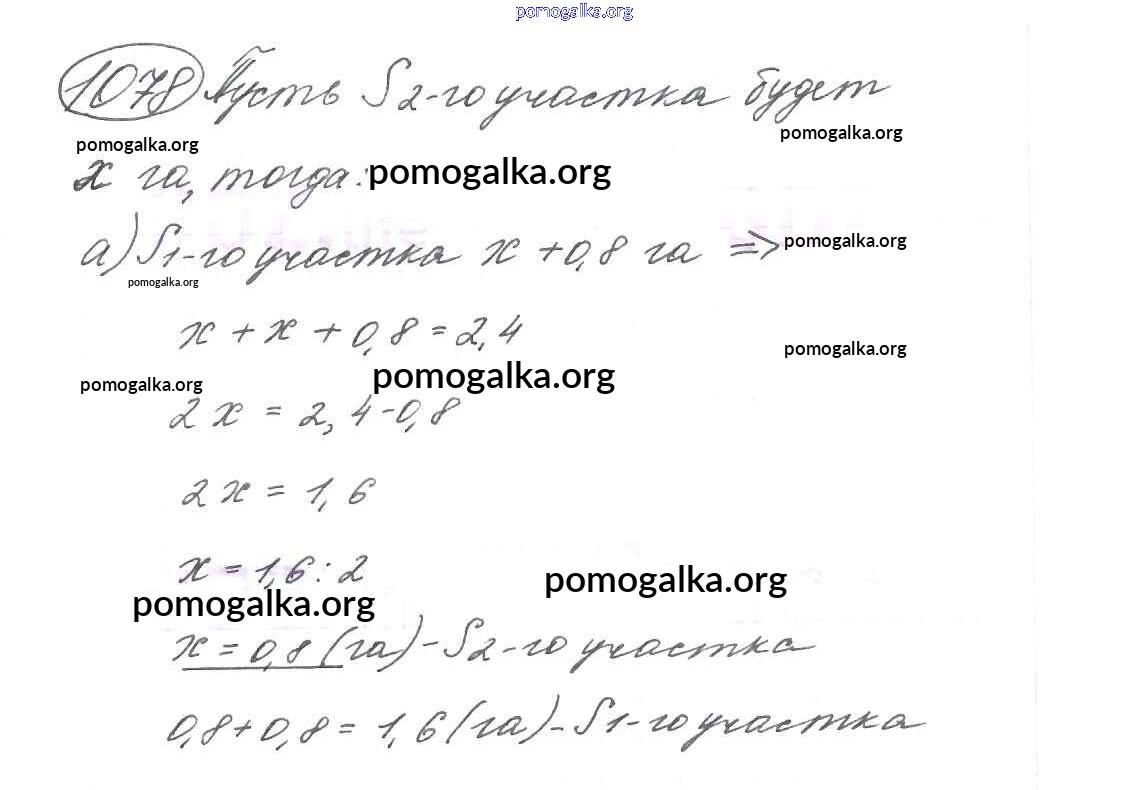 pomogalka.org
1078 Пусть S 2-го участка будет
pomogalka.org pomogalka.org
х га, тогда: pomogalka.org
а) S 1-го участка х + 0,8 га => pomogalka.org
pomogalka.org
х + х + 0,8 = 2,4
pomogalka.org
pomogalka.org pomogalka.org
2 х = 2,4 - 0,8
2 х = 1,6
х = 1,6 : 2
pomogalka.org
pomogalka.org
х = 0,8 (га) - S 2-го участка
0,8 + 0,8 = 1,6 (га) - S 1-го участка